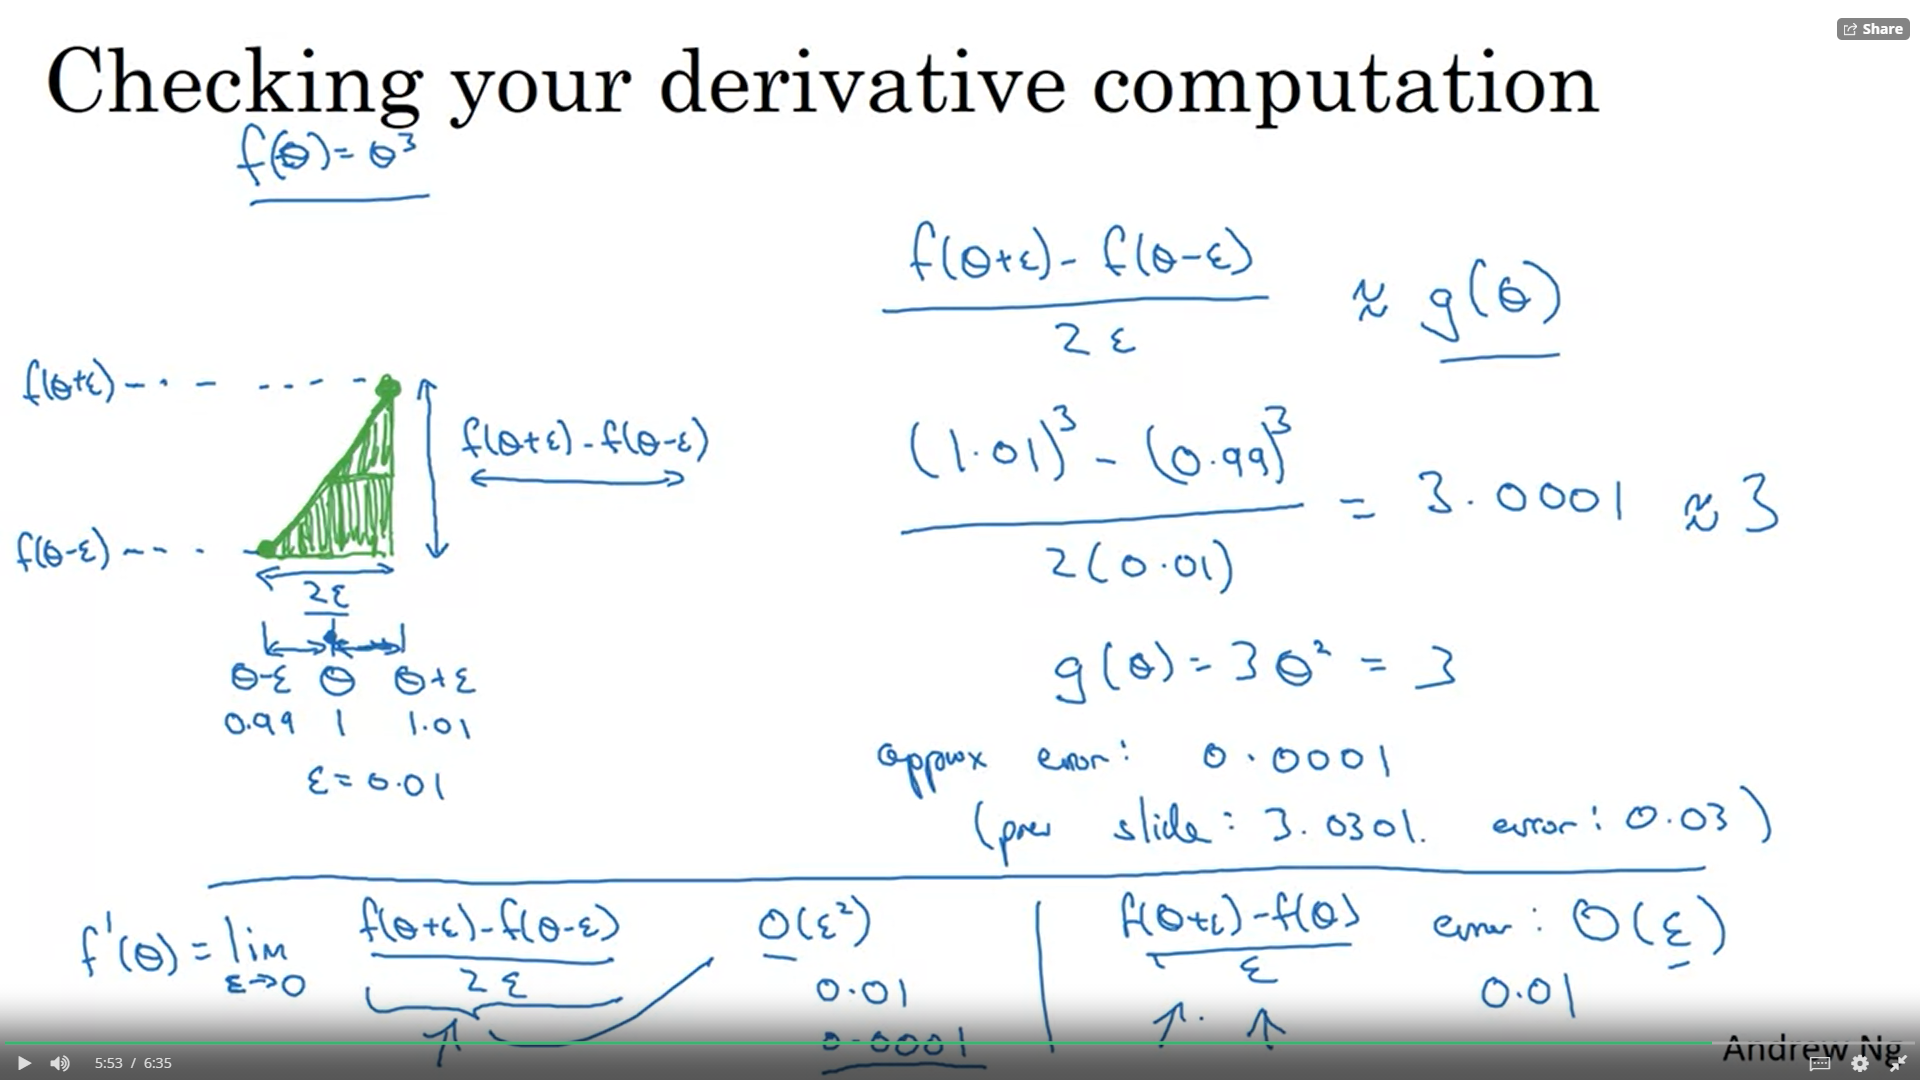 Share
Checking your derivative computation
f(θ) = θ³
f(θ+ε) - f(θ-ε)
2ε
≈ g(θ)
f(θ+ε)
f(θ+ε) - f(θ-ε)
(1.01)³ - (0.99)³
2(0.01)
= 3.0001 ≈ 3
f(θ-ε)
2ε
θ-ε θ θ+ε
0.99 1 1.01
ε = 0.01
g(θ) = 3θ² = 3
approx error: 0.0001
(prev slide: 3.0301. error: 0.03)
f'(θ) = lim
ε→0
f(θ+ε) - f(θ-ε)
2ε
O(ε²)
0.01
0.0001
f(θ+ε) - f(θ)
ε
error: O(ε)
0.01
Andrew Ng
5:53 / 6:35